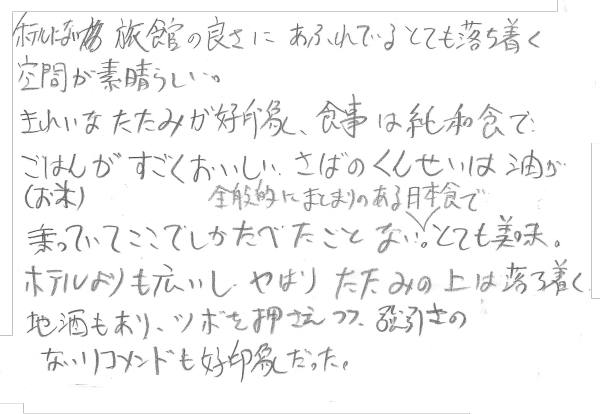 ホテルにない 旅館の良さに あふれているとても落ち着く
空間が素晴らしい。
きれいなたたみが好印象、食事は純和食で
ごはんがすごくおいしい。さばのくんせいは油が
(お米)
全般的にまとまりのある日本食で
乗っていてここでしかたべたことない。とても美味。
ホテルよりも広いし やはり たたみの上は落ち着く
地酒もあり、ツボを押さえつつ、強引さの
ないリコメンドも好印象だった。